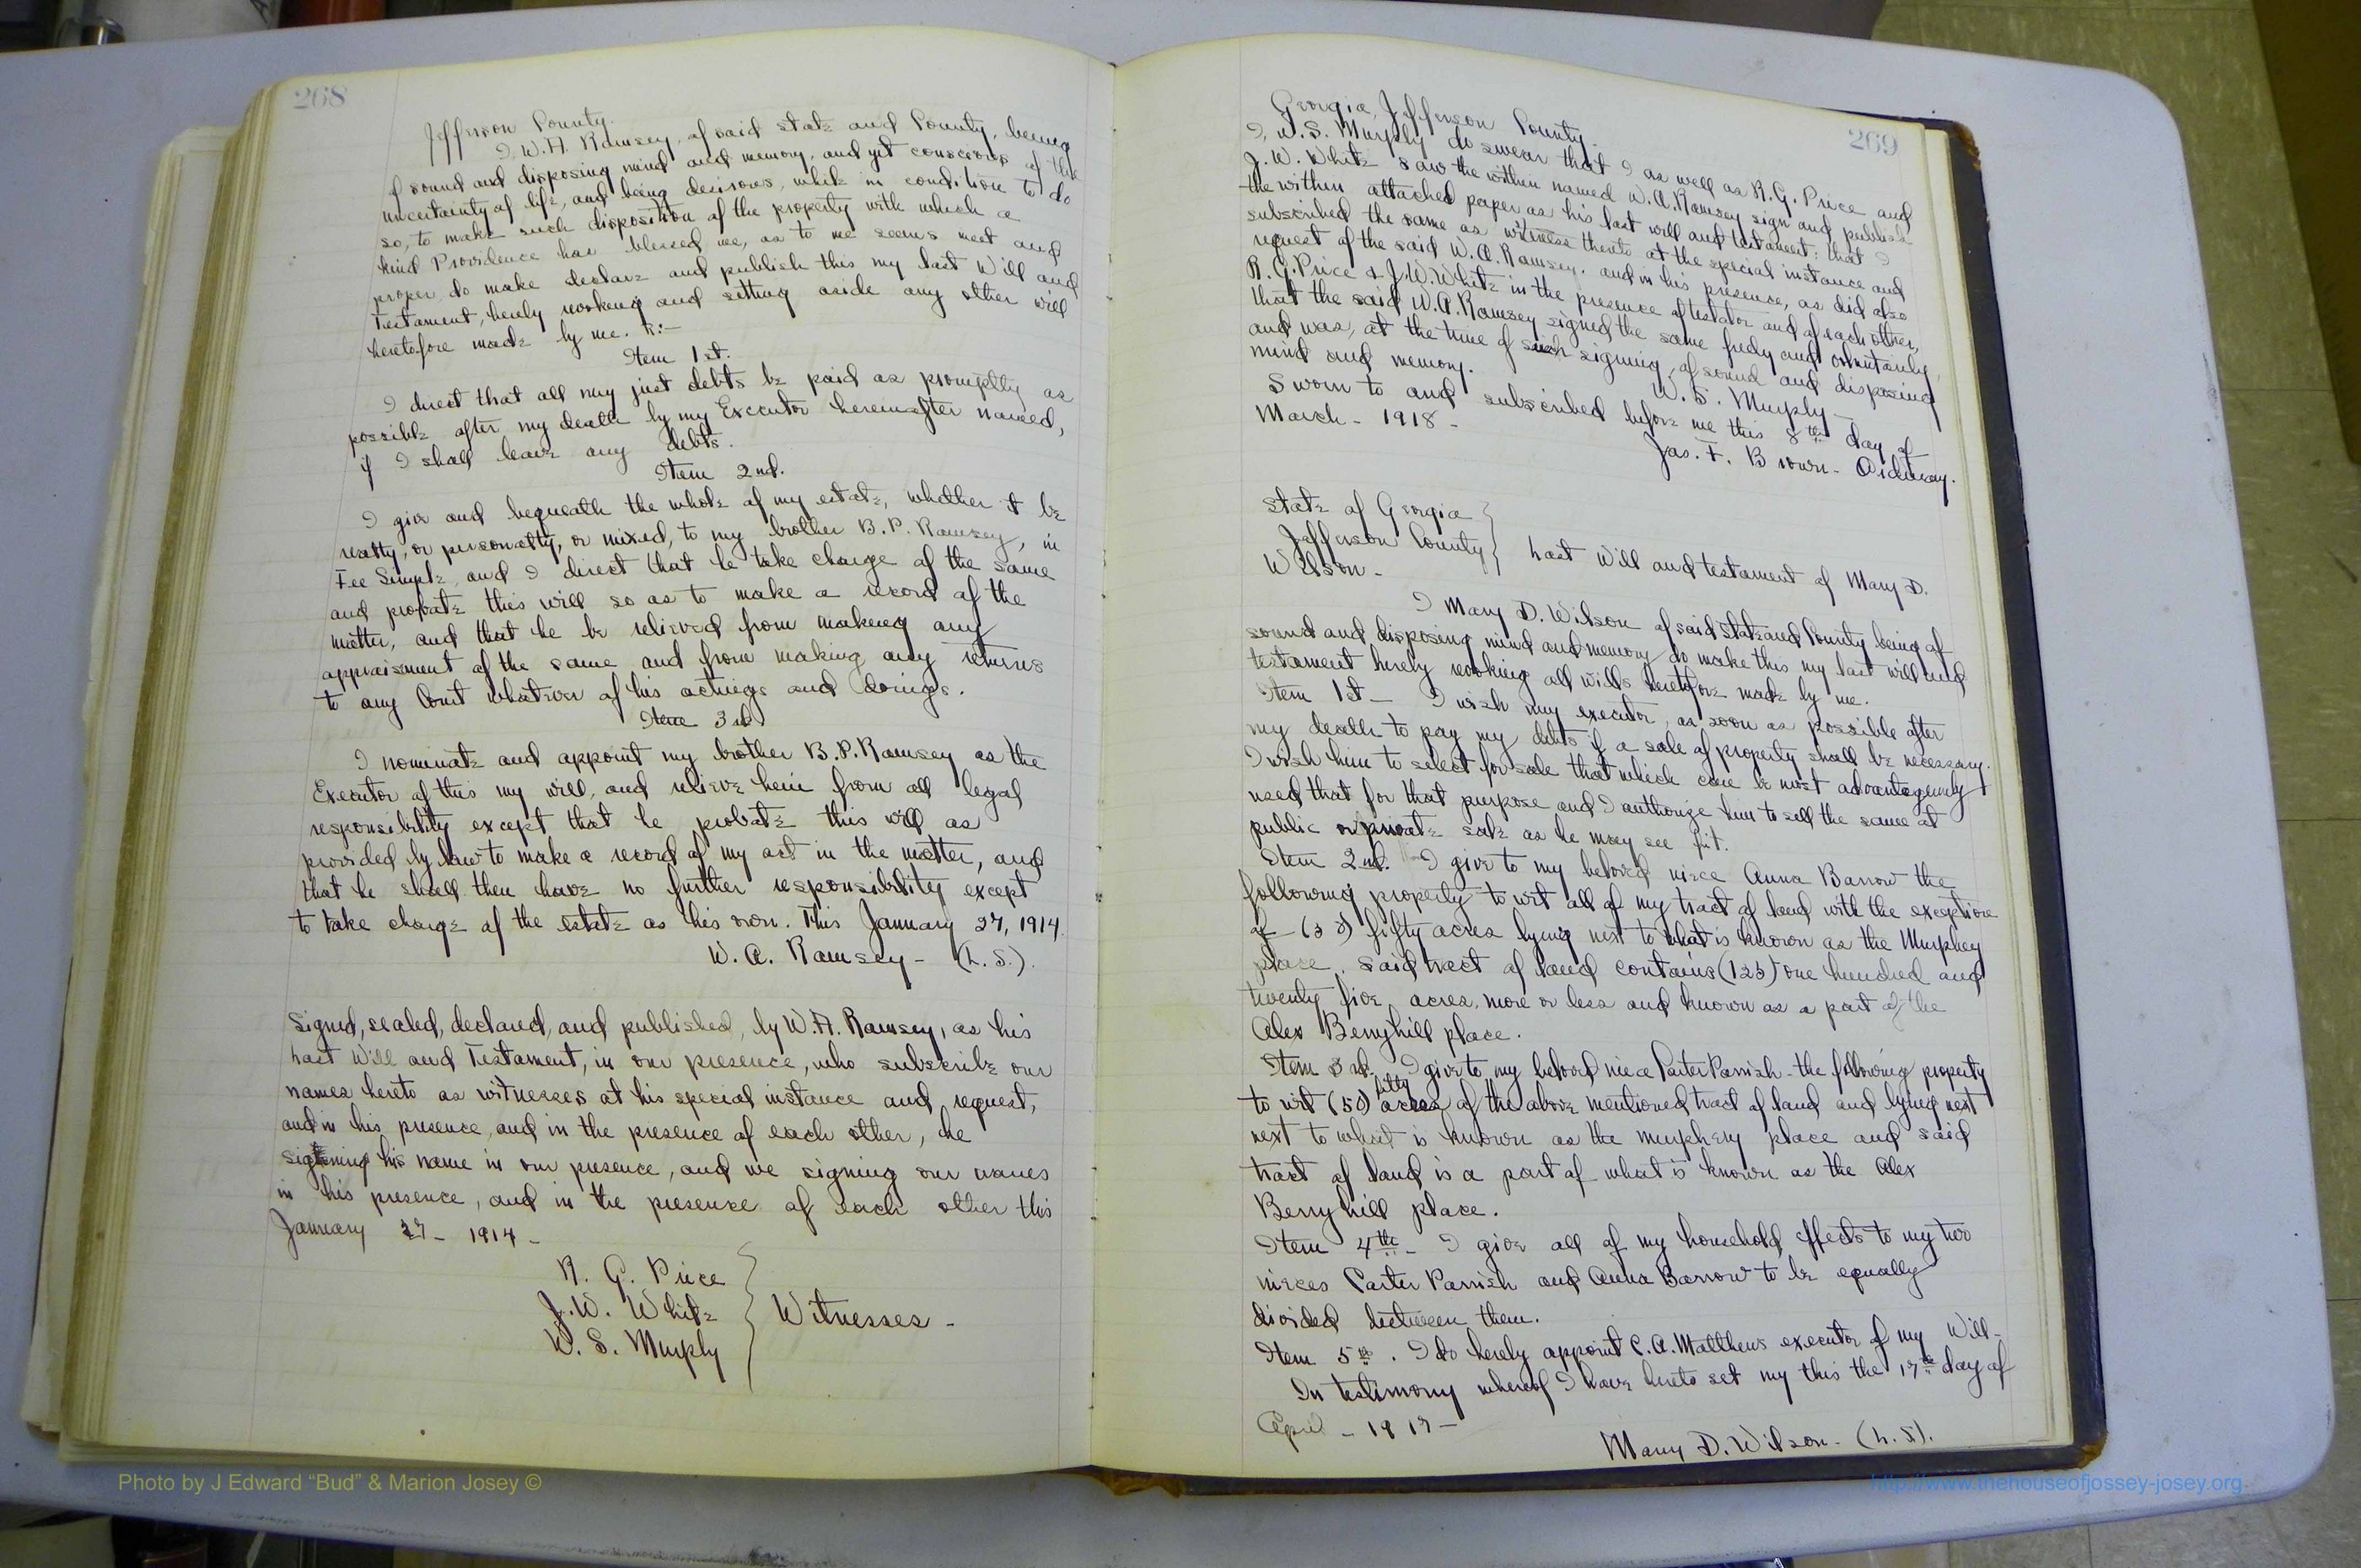 268
Jefferson County.
I, W.A. Ramsey, of said State and County, being
of sound and disposing mind and memory, and yet conscious of the
uncertainty of life, and being desirous, while in condition to do
so, to make such disposition of the property with which a
kind Providence has blessed me, as to me seems meet and
proper, do make declare and publish this my last Will and
Testament, hereby revoking and setting aside any other will
heretofore made by me.
Item 1st.
I direct that all my just debts be paid as promptly as
possible after my death by my Executor hereinafter named,
if I shall leave any debts.
Item 2nd.
I give and bequeath the whole of my estate, whether it be
realty, or personalty, or mixed, to my brother B.P. Ramsey, in
Fee Simple, and I direct that he take charge of the same
and probate this will so as to make a record of the
matter, and that he be relieved from making any
appraisment of the same and from making any returns
to any Court whatever of his actings and doings.
Item 3rd
I nominate and appoint my brother B.P. Ramsey as the
Executor of this my will, and relieve him from all legal
responsibility except that he probate this will as
provided by law to make a record of my act in the matter, and
that he shall then have no further responsibility except
to take charge of the estate as his own. This January 27, 1914.
W. A. Ramsey - (L. S.).
Signed, sealed, declared, and published, by W.A. Ramsey, as his
Last Will and Testament, in our presence, who subscribe our
names hereto as witnesses at his special instance and request,
and in his presence, and in the presence of each other, he
signing his name in our presence, and we signing our names
in his presence, and in the presence of each other this
January 27 - 1914 -
R. G. Price
J. W. White
W. S. Murphy
Witnesses -
269
Georgia, Jefferson County.
I, W. S. Murphy do swear that I as well as R. G. Price and
J. W. White saw the within named W. A. Ramsey sign and publish
the within attached paper as his last will and testament; that I
subscribed the same as witness thereto at the special instance and
request of the said W. A. Ramsey, and in his presence, as did also
R. G. Price & J. W. White in the presence of testator and of each other,
that the said W. A. Ramsey signed the same freely and voluntarily,
and was, at the time of such signing, of sound and disposing
mind and memory.
W. S. Murphy -
Sworn to and subscribed before me this 8th day of
March - 1918 -
Jas. F. Brown - Ordinary.
State of Georgia
Jefferson County
Last Will and testament of Mary D.
Wilson -
I Mary D. Wilson of said State and County being of
sound and disposing mind and memory do make this my last will and
testament hereby revoking all wills heretofore made by me.
Item 1st - I wish my executor, as soon as possible after
my death to pay my debts if a sale of property shall be necessary.
I wish him to select for sale that which can be most advantageously
used that for that purpose and I authorize him to sell the same at
public or private sale as he may see fit.
Item 2nd. I give to my beloved niece Anna Barrow the
following property to wit all of my tract of land with the exception
of (50) fifty acres lying next to what is known as the Murphey
place. Said tract of land contains (125) one hundred and
twenty five acres, more or less and known as a part of the
Alex Berryhill place.
Item 3rd. I give to my beloved niece Carter Parrish - the following property
to wit (50) fifty acres of the above mentioned tract of land and lying next
next to what is known as the Murphery place and said
tract of land is a part of what is known as the Alex
Berryhill place.
Item 4th - I give all of my household effects to my two
nieces Carter Parrish and Anna Barrow to be equally
divided between them.
Item 5th. I do hereby appoint C. A. Matthews executor of my Will -
In testimony whereof I have hereto set my this the 17th day of
April - 1917 -
Mary D. Wilson - (L. S.).
Photo by J Edward “Bud” & Marion Josey ©
http://www.thehouseofjossey-josey.org